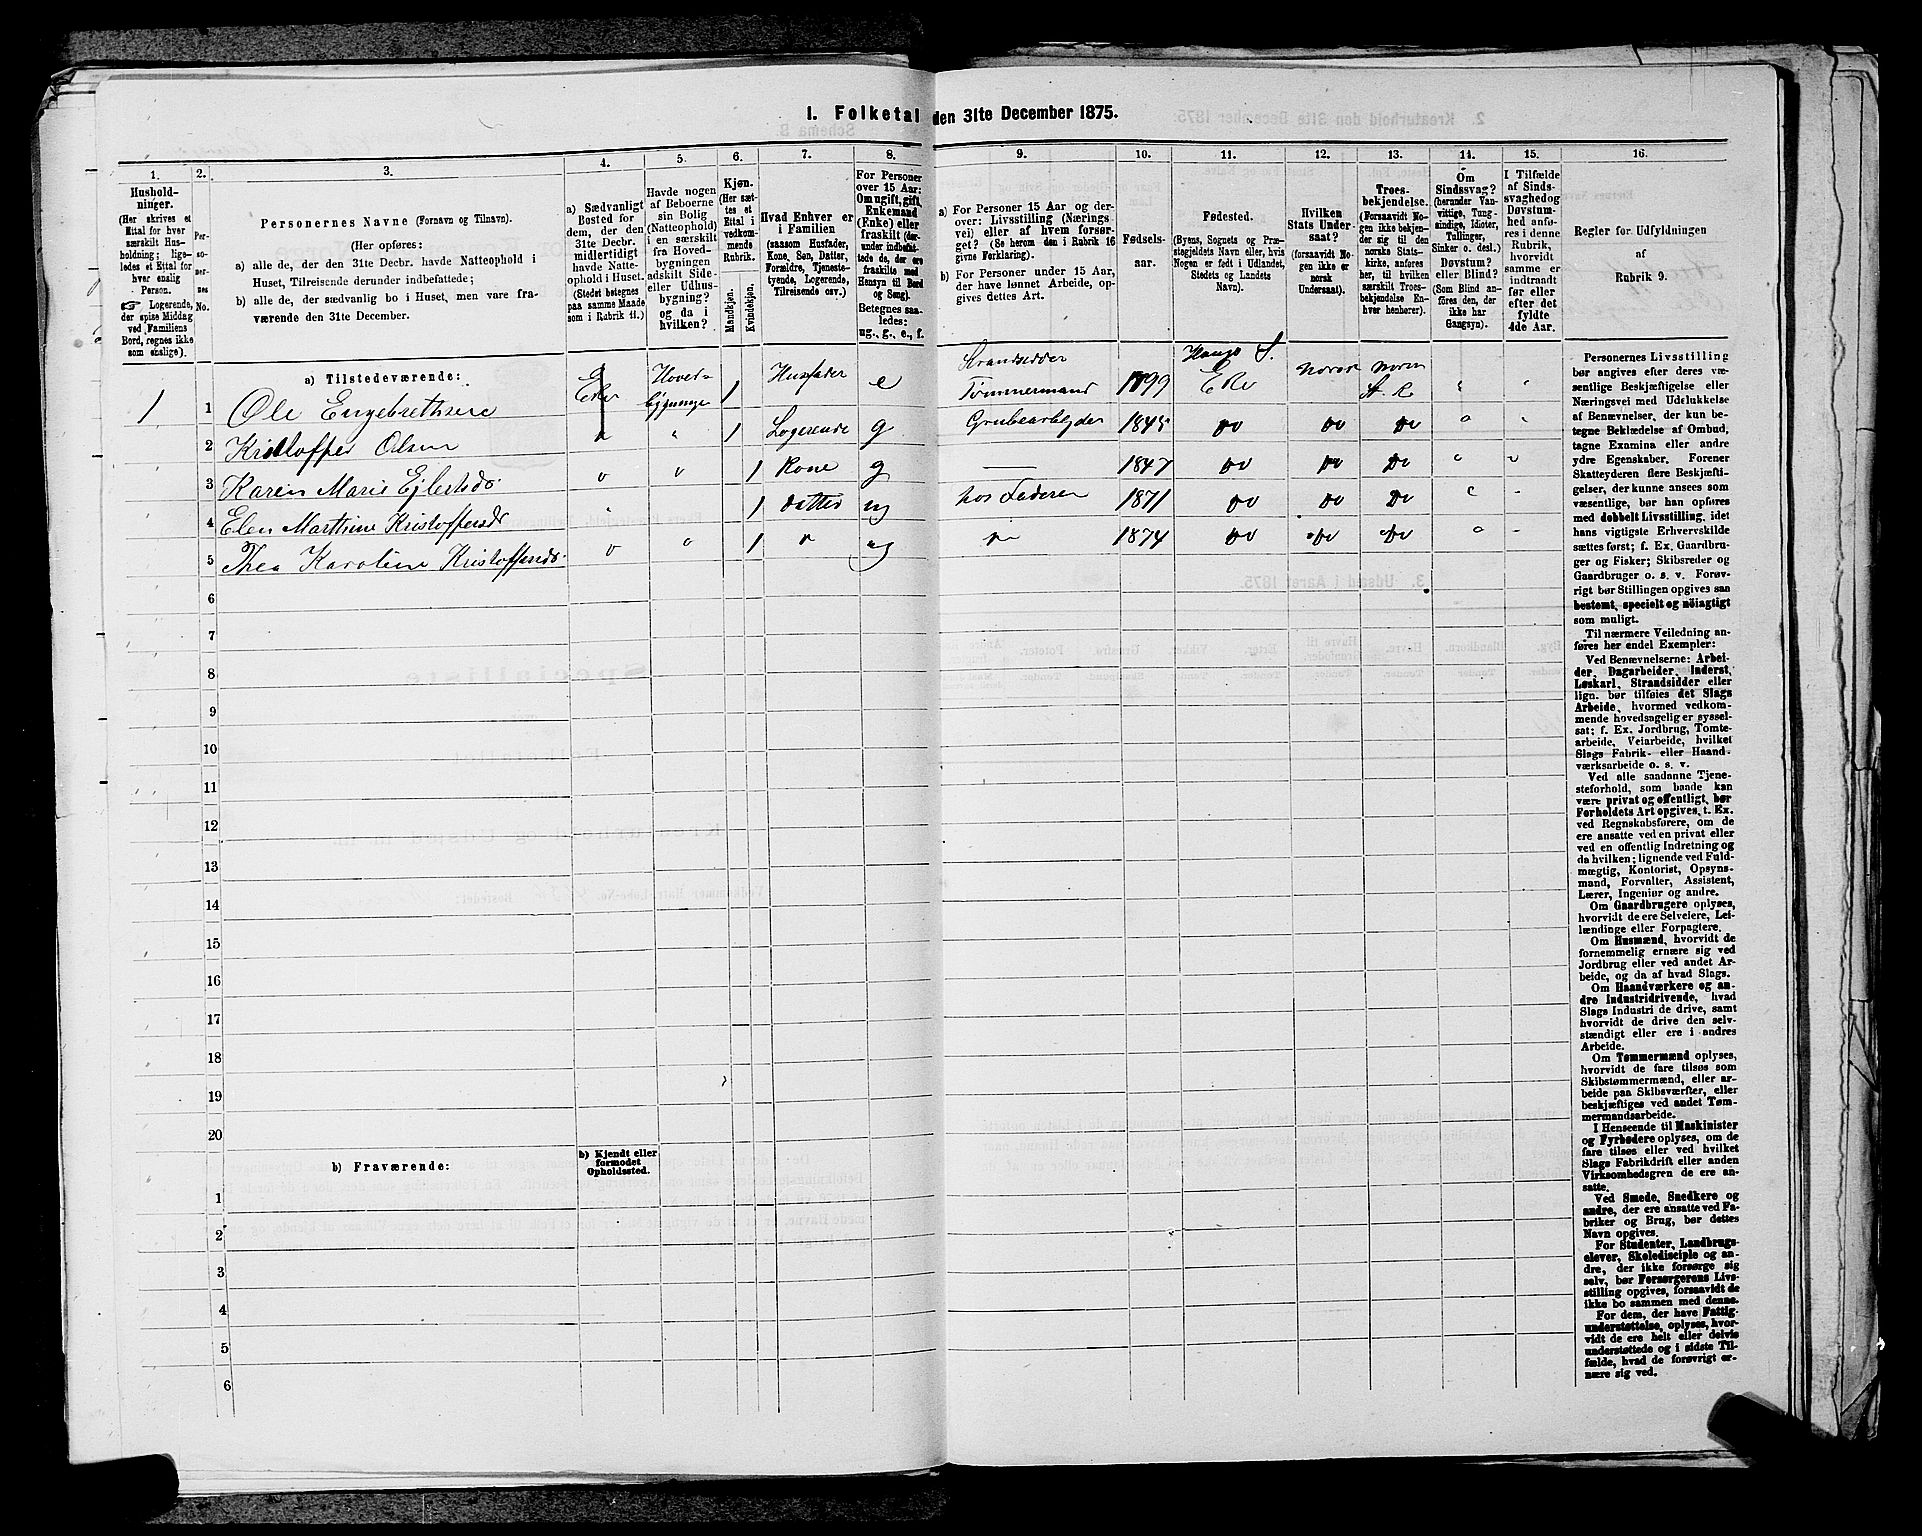 I. Folketal den 31te December 1875.
1. 2. 3. 4. 5. 6. 7. 8. 9. 10. 11. 12. 13. 14. 15. 16.
Hushold-
ninger.
(Her skrives et
Ettal for hver
særskilt Hus-
holdning; lige-
ledes et Ettal for
hver enslig
Person.
☞ Logerende,
der spise Middag
ved Familiens
Bord, regnes ikke
som enslige).
Per-
so-
ner-
nes
No.
Personernes Navne (Fornavn og Tilnavn).
(Her opføres:
a) alle de, der den 31te Decbr. havde Natteophold i
Huset, Tilreisende derunder indbefattede;
b) alle de, der sædvanlig bo i Huset, men vare fra-
værende den 31te December.
a) Sædvanligt
Bosted for
dem, der den
31te Decbr.
midlertidigt
havde Natte-
ophold i Huset.
(Stedet betegnes
paa samme Maade
som i Rubrik 11.)
Havde nogen
af Beboerne
sin Bolig
(Natteophold)
i en særskilt
fra Hoved-
bygningen
adskilt Side-
eller Udhus-
bygning?
og da i
hvilken?
Kjøn.
(Her sæt-
tes et
Ettal i
vedkom-
mende
Rubrik.
Mandkjøn.
Kvindekjøn.
Hvad Enhver er
i Familien
(saasom Husfader,
Kone, Søn, Datter,
Forældre, Tjeneste-
tyende, Logerende,
Tilreisende osv.)
For Personer
over 15 Aar:
Om ugift, gift,
Enkemand
(Enke) eller
fraskilt (der-
under indbefat-
tede de, der ere
fraskilte med
Hensyn til Bord
og Seng).
Betegnes saa-
ledes:
ug., g., e., f.
a) For Personer 15 Aar og der-
over: Livsstilling (Nærings-
vei) eller af hvem forsør-
get? (Se herom den i Rubrik 16
givne Forklaring).
b) For Personer under 15 Aar,
der have lønnet Arbeide, op-
gives dettes Art.
Fødsels-
aar.
Fødested.
(Byens, Sognets og Præ-
stegjeldets Navn eller, hvis
Nogen er født i Udlandet,
Stedets og Landets
Navn).
Hvilken
Stats Under-
saat?
(foraavidt No-
gen ikke er
norsk
Undersaat).
Troes-
bekjendelse.
(Forsaavidt No-
gen ikke bekjen-
der sig til den
norske Stats-
kirke, anføres
her, til hvilken
særskilt Troes-
bekjendelse En-
hver henhører).
Om
Sindssvag?
(herunder Van-
vittige, Tung-
sindige, Idioter,
Tullinger,
Sinker o. desl.)
Døvstum?
eller Blind?
(Som Blind an-
føres den, der
ikke har
Gangsyn).
I Tilfælde
af Sinds-
svaghed og
Døvstum-
hed anfø-
res i denne
Rubrik,
hvorvidt
samme er
indtraadt
før eller
efter det
fyldte
4de Aar.
Regler for Udfyldningen
af
Rubrik 9.
a) Tilstedeværende:
1 1 Ole Engebrethsen Eker Hoved-bygninge 1 Husfader e Strandsidder Tømmermand 1799 Haugs S. Eker norsk norsk St. K. " "
2 Kristoffer Olsen " " 1 Logerende g Grubearbeyder 1845 do do do " "
3 Karen Marie Ejlertsd. " " 1 Kone g — 1847 do do do " "
4 Elen Marthine Kristoffersd " 1 datter ug hos Federen 1871 do do do " "
5 Thea Karoline Kristoffersd. " " 1 " ug " 1874 do do do " "
6
7
8
9
10
11
12
13
14
15
16
17
18
19
20
b) Fraværende:
b) Kjendt eller
formodet
Opholdssted.
1
2
3
4
5
6
Personernes Livsstilling
bør angives efter deres væ-
sentlige Beskjæftigelse eller
Næringsvei med Udelukkelse
af Benævnelser, der kun be-
tegne Beklædelse af Ombud,
tagne Examina eller andre
ydre Egenskaber. Forener
Skatteyderen flere Beskjæfti-
gelser, der kunne ansees som
væsentlige, bør han opføres
med dobbelt Livsstilling, idet
hans vigtigste Erhvervskilde
sættes først; f. Ex. Gaardbru-
ger og Fisker; Skibsreder og
Gaardbruger o. s. v. Forøv-
rigt bør Stillingen opgives saa
bestemt, specielt og nöiagtigt
som muligt.
Til nærmere Veiledning an-
føres her endel Exempler:
Ved Benævnelserne: Arbei-
der, Dagarbeider, Inderst,
Løskarl, Strandsidder eller
lign. bør tilføies det Slags
Arbeide, hvormed vedkom-
mende hovedsagelig er syssel-
sat; f. Ex. Jordbrug, Tomte-
arbeide, Veiarbeide, hvilket
Slags Fabrik- eller Haand-
værksarbeide o. s. v.
Ved alle saadanne Tjene-
steforhold, som baade kan
være privat og offentligt, bør
Forholdets Art opgives, t. Ex.
ved Regnskabsførere, om de
ere ansatte ved en privat eller
ved en offentlig Indretning og
da hvilken; lignende ved Fuld-
mægtig, Kontorist, Opsyns-
mand, Forvalter, Assistent,
Lærer, Ingeniør og andre.
Om Gaardbrugere oplyses,
hvorvidt de ere Selveiere, Lei-
lændinge eller Forpagtere.
Om Husmænd, hvorvidt de
fornemmelig ernære sig ved
Jordbrug eller ved andet Ar-
beide, og da af hvad Slags.
Om Haandværkere og an-
dre Industridrivende, hvad
Slags Industri de drive, samt
hvorvidt de drive den selv-
stændigt eller ere i andres
Arbeide.
Om Tømmermænd oplyses,
hvorvidt de fare tilsøs som
Skibstømmermænd, eller ar-
beide paa Skibsværfter, eller
beskjæftiges ved andet Tøm-
mermandsarbeide.
I Henseende til Maskinister
og Fyrbødere oplyses, om de
fare tilsøs eller ved hvilket
Slags Fabrikdrift eller anden
Virksomhedsgren de ere an-
satte.
Ved Smede, Snedkere og
andre, der ere ansatte ved Fa-
briker og Brug, bør dettes
Navn opgives.
For Studenter, Landbrugs-
elever, Skoledisciple og an-
dre, der ikke forsørge sig
selv, bør Forsørgerens Livs-
stilling opgives, forsaavidt de
ikke bo sammen med denne.
For dem, der have Fattig-
understøttelse, oplyses, hvor-
vidt de ere helt eller delvis
understøttede og i sidste Til-
fælde, hvad de forøvrigt er-
nære sig ved.